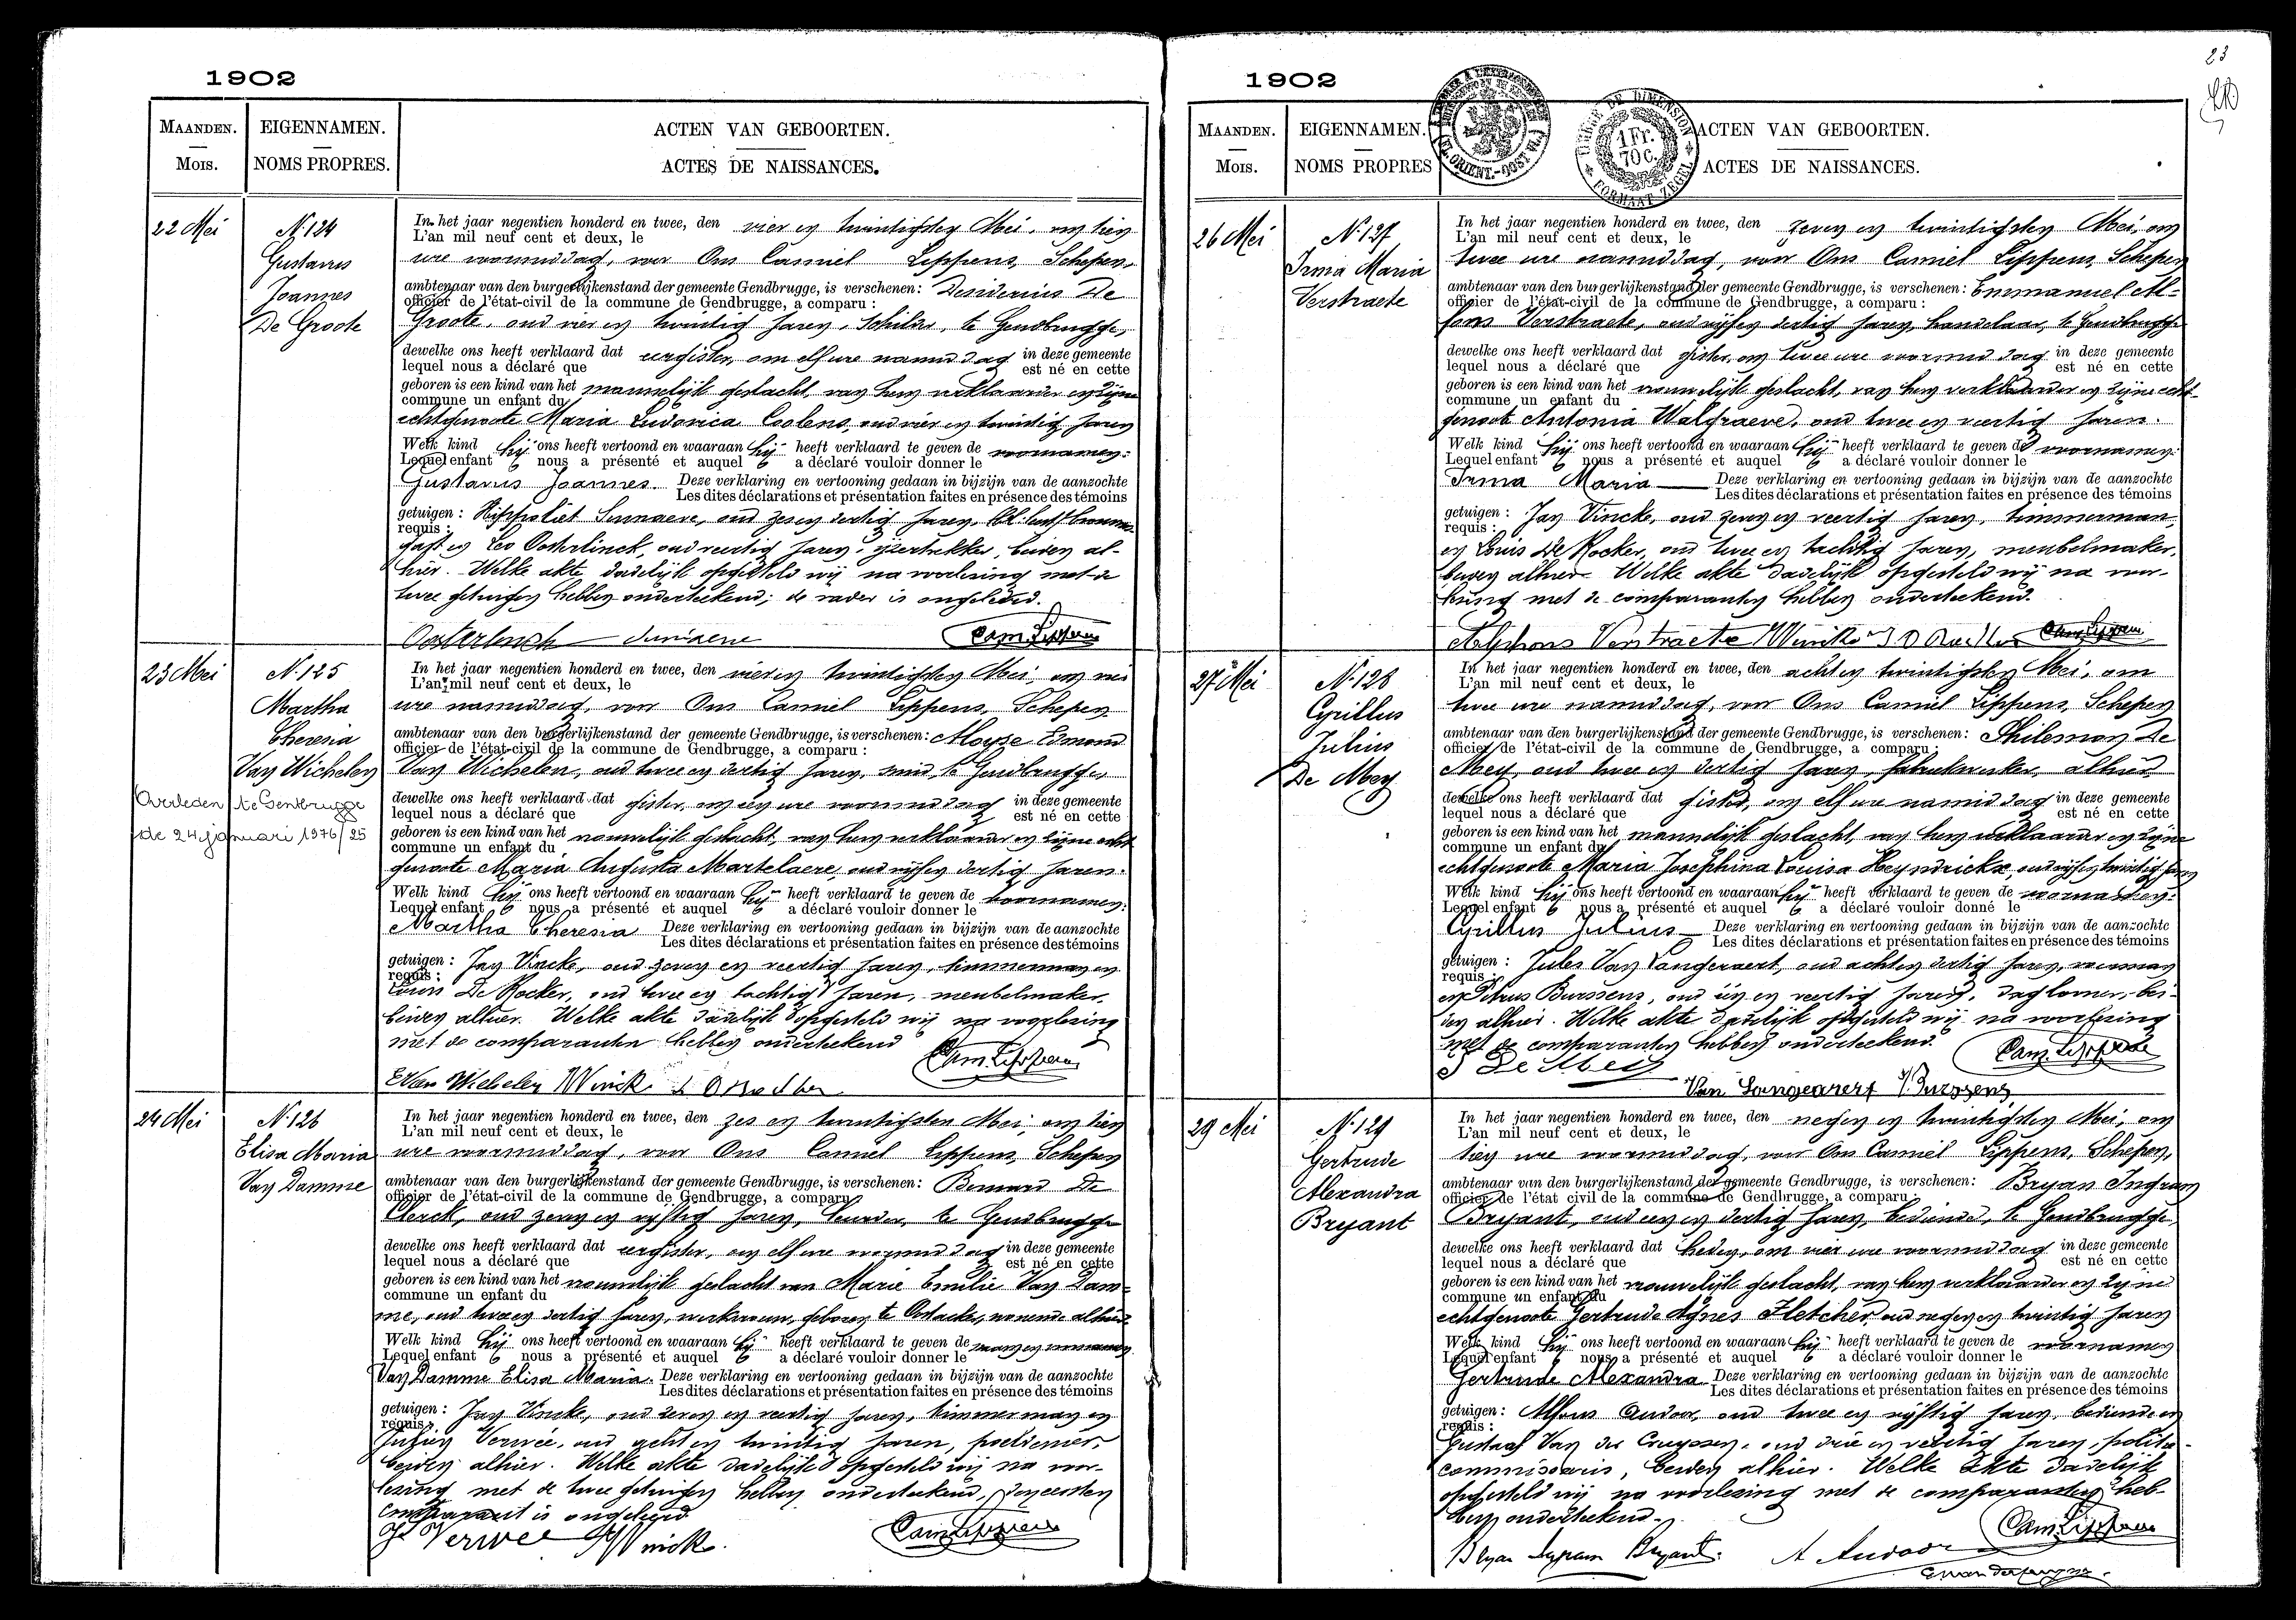 1902
MAANDEN.
MOIS.
EIGENNAMEN.
NOMS PROPRES.
ACTEN VAN GEBOORTEN.
ACTES DE NAISSANCES.
22 Mei
N. 124
Gustavus
Joannes
De Groote
In het jaar negentien honderd en twee, den vier en twintigsten Mei, om tien
L'an mil neuf cent et deux, le
ure voormiddag, voor Ons Camiel Lippens, Schepen,
ambtenaar van den burgerlijkenstand der gemeente Gendbrugge, is verschenen: Desiderius De
officier de l'état-civil de la commune de Gendbrugge, a comparu :
Groote, oud vier en twintig jaren, schilder, te Gendbrugge,
dewelke ons heeft verklaard dat eergister, om elf ure namiddag in deze gemeente
lequel nous a déclaré que est né en cette
geboren is een kind van het mannelijk geslacht, van hem verklaarder en zijne
commune un enfant du
echtgenoote Maria Ludovica Coolens, oud vier en twintig jaren
Welk kind hij ons heeft vertoond en waaraan hij heeft verklaard te geven de voornamen:
Lequel enfant nous a présenté et auquel a déclaré vouloir donner le
Gustavus Joannes. Deze verklaring en vertooning gedaan in bijzijn van de aanzochte
Les dites déclarations et présentation faites en présence des témoins
getuigen : Hippoliet Sunaere, oud zes en dertig jaren,
requis :
gast en Leo Oosterlinck, oud veertig jaren, ijzertrekker, beiden al-
hier. Welke akte dadelijk opgesteld wij na voorlezing met de
twee getuigen hebben onderteekend; de vader is ongeleerd.
Oosterlinck Sunaere Cam. Lippens
23 Mei
N. 125
Martha
Theresia
Van Wichelen
Overleden te Gentbrugge
de 24 januari 1976/25
In het jaar negentien honderd en twee, den vier en twintigsten Mei, om
L'an mil neuf cent et deux, le
ure namiddag, voor Ons Camiel Lippens, Schepen
ambtenaar van den burgerlijkenstand der gemeente Gendbrugge, is verschenen: Aloyse Edmond
officier de l'état-civil de la commune de Gendbrugge, a comparu :
Van Wichelen, oud twee en dertig jaren, smid, te Gendbrugge,
dewelke ons heeft verklaard dat gister, om een ure voormiddag in deze gemeente
lequel nous a déclaré que est né en cette
geboren is een kind van het vrouwelijk geslacht, van hem verklaarder en zijne echt
commune un enfant du
genoote Maria Augusta Martelaere, oud vijf en dertig jaren.
Welk kind hij ons heeft vertoond en waaraan hij heeft verklaard te geven de voornamen:
Lequel enfant nous a présenté et auquel a déclaré vouloir donner le
Martha Theresia Deze verklaring en vertooning gedaan in bijzijn van de aanzochte
Les dites déclarations et présentation faites en présence des témoins
getuigen : Jan Vincke, oud zeven en veertig jaren, timmerman en
requis :
Louis De Kocker, oud twee en tachtig jaren, meubelmaker,
beiden alhier. Welke akte dadelijk opgesteld wij na voorlezing
met de comparanten hebben onderteekend
Cam. Lippens
E Van Wichelen J Vincke
24 Mei
N. 126
Elisa Maria
Van Damme
In het jaar negentien honderd en twee, den zes en twintigsten Mei, om tien
L'an mil neuf cent et deux, le
ure voormiddag, voor Ons Camiel Lippens, Schepen
ambtenaar van den burgerlijkenstand der gemeente Gendbrugge, is verschenen: Bernard De
officier de l'état-civil de la commune de Gendbrugge, a comparu
Clerck, oud zeven en vijftig jaren, te Gendbrugge
dewelke ons heeft verklaard dat eergister, om elf ure voormiddag in deze gemeente
lequel nous a déclaré que est né en cette
geboren is een kind van het vrouwelijk geslacht van Marie Emilie Van Dam=
commune un enfant du
me, oud twee en dertig jaren, werkvrouw, geboren te Oostacker, wonende alhier
Welk kind hij ons heeft vertoond en waaraan hij heeft verklaard te geven de naam en voornamen
Lequel enfant nous a présenté et auquel a déclaré vouloir donner le
Van Damme Elisa Maria. Deze verklaring en vertooning gedaan in bijzijn van de aanzochte
Les dites déclarations et présentation faites en présence des témoins
getuigen : Jan Vincke, oud zeven en veertig jaren, timmerman en
requis :
Julien Verwee, oud acht en twintig jaren,
beiden alhier. Welke akte dadelijk opgesteld wij na voor-
lezing met de twee getuigen hebben onderteekend, den eersten
comparant is ongeleerd
J. Verwee J Vincke. Cam. Lippens
23
1902
MAANDEN.
MOIS.
EIGENNAMEN.
NOMS PROPRES
ACTEN VAN GEBOORTEN.
ACTES DE NAISSANCES.
TIMBRE DE DIMENSION
1 Fr.
70 c.
FORMAAT ZEGEL
26 Mei
N. 127
Irma Maria
Verstraete
In het jaar negentien honderd en twee, den zeven en twintigsten Mei, om
L'an mil neuf cent et deux, le
twee ure namiddag, voor Ons Camiel Lippens, Schepen
ambtenaar van den burgerlijkenstand der gemeente Gendbrugge, is verschenen: Emmanuel Al-
officier de l'état-civil de la commune de Gendbrugge, a comparu :
fons Verstraete, oud vijf en dertig jaren, handelaar, te Gendbrugge
dewelke ons heeft verklaard dat gister, om twee ure voormiddag in deze gemeente
lequel nous a déclaré que est né en cette
geboren is een kind van het vrouwelijk geslacht, van hem verklaarder en zijne echt-
commune un enfant du
genoote Antonia Walgraeve, oud twee en veertig jaren.
Welk kind hij ons heeft vertoond en waaraan hij heeft verklaard te geven de voornamen:
Lequel enfant nous a présenté et auquel a déclaré vouloir donner le
Irma Maria Deze verklaring en vertooning gedaan in bijzijn van de aanzochte
Les dites déclarations et présentation faites en présence des témoins
getuigen : Jan Vincke, oud zeven en veertig jaren, timmerman,
requis :
en Louis De Kocker, oud twee en tachtig jaren, meubelmaker,
beiden alhier. Welke akte dadelijk opgesteld wij na voor-
lezing met de comparanten hebben onderteekend.
Alphons Verstraete J Vincke Cam. Lippens
27 Mei
N. 128
Cyrillus
Julius
De Mey
In het jaar negentien honderd en twee, den acht en twintigsten Mei, om
L'an mil neuf cent et deux, le
twee ure namiddag, voor Ons Camiel Lippens, Schepen
ambtenaar van den burgerlijkenstand der gemeente Gendbrugge, is verschenen: Philemon De
officier de l'état-civil de la commune de Gendbrugge, a comparu :
Mey, oud twee en dertig jaren, fabriekwerker, alhier
dewelke ons heeft verklaard dat gister, om elf ure namiddag in deze gemeente
lequel nous a déclaré que est né en cette
geboren is een kind van het mannelijk geslacht, van hem verklaarder en zijne
commune un enfant du
echtgenoote Maria Josephina Louisa Heyndrickx, oud vijf en twintig jaren
Welk kind hij ons heeft vertoond en waaraan hij heeft verklaard te geven de voornamen:
Lequel enfant nous a présenté et auquel a déclaré vouloir donné le
Cyrillus Julius Deze verklaring en vertooning gedaan in bijzijn van de aanzochte
Les dites déclarations et présentation faites en présence des témoins
getuigen : Jules Van Langeraert, oud acht en dertig jaren,
requis :
en Petrus Burssens, oud één en veertig jaren, daglooner, bei-
den alhier. Welke akte dadelijk opgesteld wij na voorlezing
met de comparanten hebben onderteekend.
P De Mey Cam. Lippens
Van Langeraert P. Burssens
29 Mei
N. 129
Gertrude
Alexandra
Bryant
In het jaar negentien honderd en twee, den negen en twintigsten Mei, om
L'an mil neuf cent et deux, le
tien ure voormiddag, voor Ons Camiel Lippens, Schepen,
ambtenaar van den burgerlijkenstand der gemeente Gendbrugge, is verschenen: Bryan Ingram
officier de l'état civil de la commune de Gendbrugge, a comparu :
Bryant, oud een en dertig jaren, bediende, te Gendbrugge,
dewelke ons heeft verklaard dat heden, om vier ure voormiddag in deze gemeente
lequel nous a déclaré que est né en cette
geboren is een kind van het vrouwelijk geslacht, van hem verklaarder en zijne
commune un enfant du
echtgenoote Gertrude Agnes Fletcher, oud negen en twintig jaren
Welk kind hij ons heeft vertoond en waaraan hij heeft verklaard te geven de voornamen
Lequel enfant nous a présenté et auquel a déclaré vouloir donner le
Gertrude Alexandra Deze verklaring en vertooning gedaan in bijzijn van de aanzochte
Les dites déclarations et présentation faites en présence des témoins
getuigen : Alfons Audoor, oud twee en vijftig jaren, bediende en
requis :
Gustaaf Van der Cruyssen, oud drie en veertig jaren, politie-
commissaris, beiden alhier. Welke akte dadelijk
opgesteld wij na voorlezing met de comparanten heb-
ben onderteekend.
Bryan Ingram Bryant. A Audoor Cam. Lippens
G Van der Cruyssen.